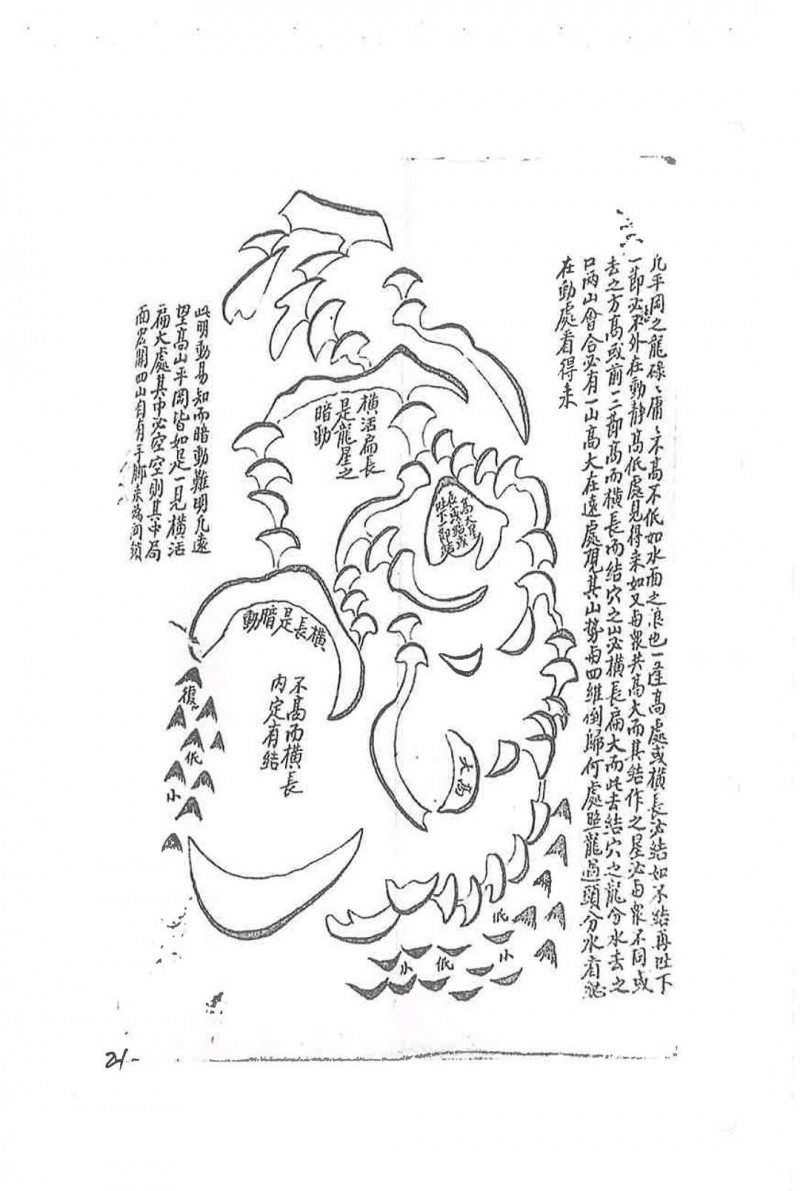 凡平岡之龍碌々庸々不高不低如水面之浪也一逢高處或橫長必結如不結再吐下
一節必不外在動靜高低處見得來如又與衆共高大而其結作之星必與衆不同或
去之方高或前二三節高而橫長而結穴之山必橫長扁大而此去結穴之龍分水去之
口兩山會合必有一山高大在遠處見其山勢與四維倒歸何處照龍過頭分水看
在動處看得來
高大星
長或結或
吐下一節結
橫活扁長
是龍星之
暗動
此明動易知而暗動難明凡遠
望高山平岡皆如是一見橫活
扁大處其中必空空則其中局
面宏開四山自有手脚來為關鎖
橫長是暗動
不高而橫長
內定有結
低
小
高大
低
小
低
小
21-